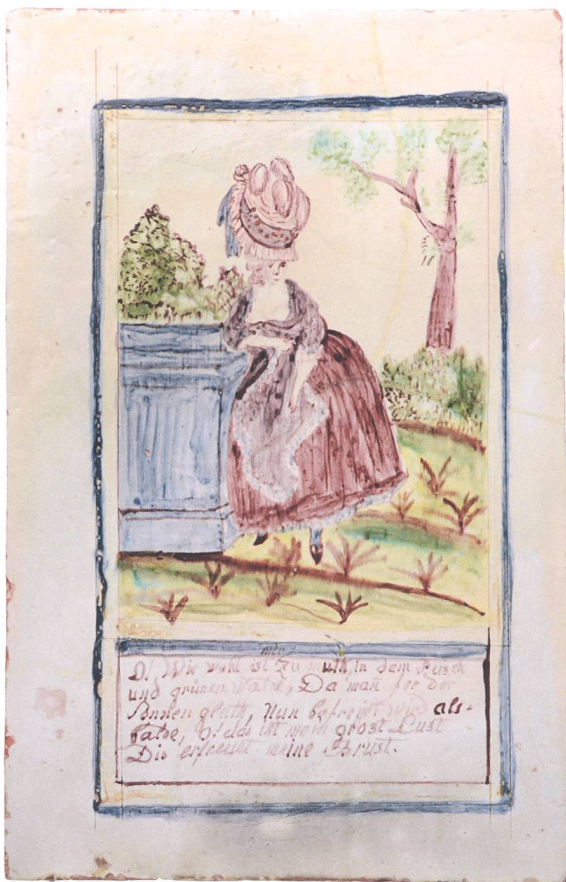 mir
O! Wie wohl ist zu muth, in dem Busch
und grünen Wald, Da man for der
Sonnen gluth, Nun befreyet wird als-
balde, O! das ist mein grost Lust
Die erfreuet meine Brust.